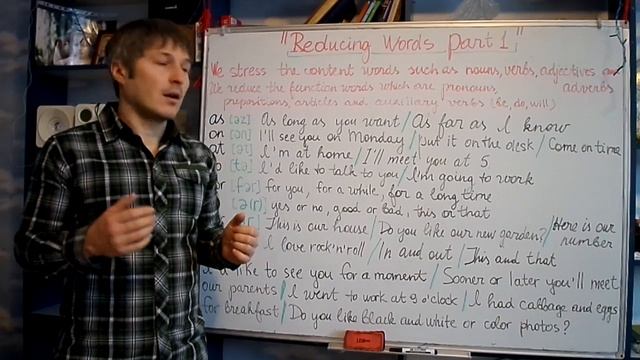 "Reducing Words part 1"
We stress the content words such as nouns, verbs, adjectives and
We reduce the function words which are pronouns, adverbs
prepositions, articles and auxiliary verbs (be, do, will)
as [əz] As long as you want / As far as I know
on [ən] I'll see you on Monday / put it on the desk / Come on time
at [ət] I'm at home / I'll meet you at 5
[tə] I'd like to talk to you / I'm going to work
[fər] for you, for a while, for a long time
[ə(r)] yes or no, good or bad, this or that
This is our house / Do you like our new garden? / Here is our number
I love rock'n'roll / In and out / This and that
like to see you for a moment / Sooner or later you'll meet
our parents / I went to work at 9 o'clock / I had cabbage and eggs
for breakfast / Do you like black and white or color photos?